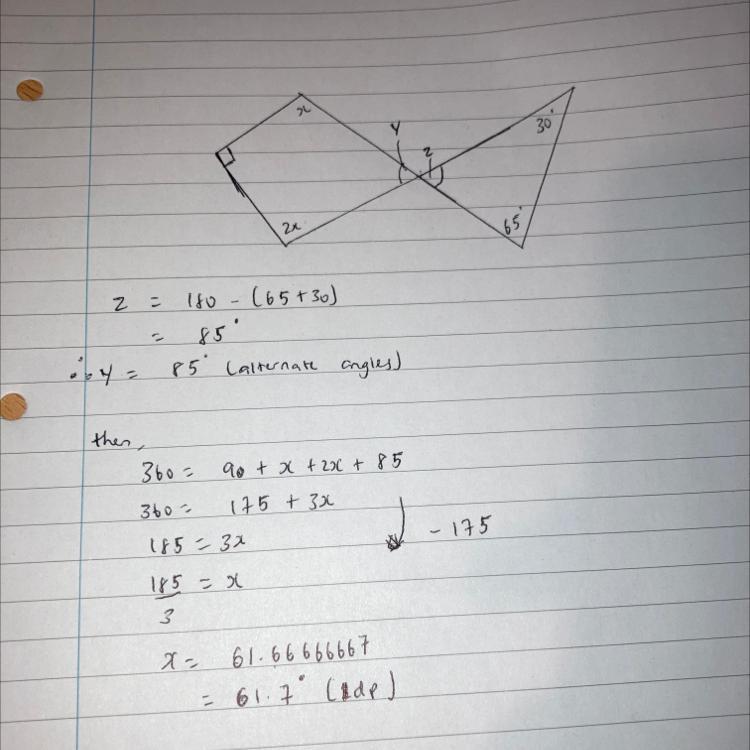 x
Y
z
30°
2x
65°
z = 180 - (65+30)
= 85°
∴ y = 85° (alternate angles)
then,
360 = 90 + x + 2x + 85
360 = 175 + 3x
- 175
185 = 3x
185/3 = x
x = 61.66666667
= 61.7° (1dp)